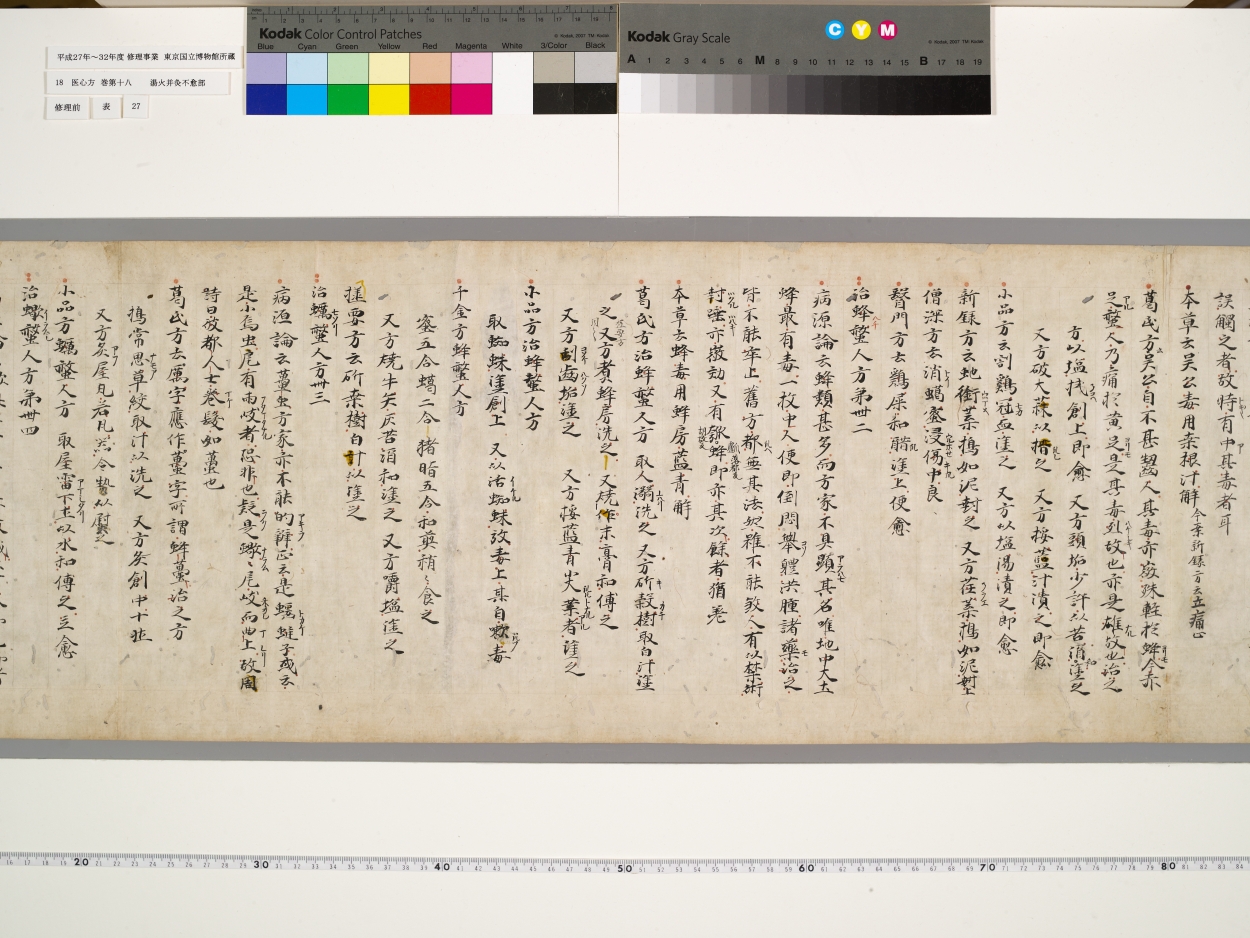 平成27年～32年度 修理事業 東京国立博物館所蔵
18 医心方 巻第十八 湯火并灸不愈部
修理前 表 27
Kodak Color Control Patches
© Kodak, 2007 TM: Kodak
Blue Cyan Green Yellow Red Magenta White 3/Color Black
Kodak Gray Scale
C Y M
© Kodak, 2007 TM: Kodak
A 1 2 3 4 5 6 M 8 9 10 11 12 13 14 15 B 17 18 19
誤觸之者故時有中其毒者耳
本草云吴公毒用桒根汁解 今案新錄方云立痛止
葛氏方吴公自不甚齧人其毒亦微殊輕於蜂今赤
足螫人乃痛於黄足是其毒烈故也亦是雄故也治之
方以塩拭創上即愈 又方頭垢少許以苦酒塗之
又方破大蒜以揩之 又方挼藍汁漬之即愈
小品方云割鷄冠血塗之 又方以塩湯漬之即愈
新録方云地衝菜擣如泥封之 又方荏葉擣如泥封上
僧深方云消蠟蜜浸傷中良
醫門方云鷄屎和醋塗上便愈
治蜂螫人方第卅二
病源論云蜂類甚多而方家不具顕其名唯地中大土
蜂最有毒一枚中人便即倒悶舉體洪腫諸藥治之
皆不能卒止舊方都無其法然雖不能致人有以禁術
封唾亦微効又有瓠蜂即亦其次餘者猶善
本草云蜂毒用蜂房藍青解
葛氏方治蜂螫人方 取人溺洗之 又方斫穀樹取白汁塗
之 又方煮蜂房洗之 又燒作末膏和傅之
又方刮齒垢塗之 又方挼藍青尖葉者塗之
小品方治蜂螫人方
取蜘蛛塗創上 又以活蜘蛛放毒上其自噏毒
千金方蜂螫人方
蜜五合 蠟二合 猪脂五合 和煎稍々食之
又方燒牛矢灰苦酒和塗之 又方嚼塩塗之
極要方云斫桒樹白汁以塗之
治蠆螫人方卅三
病源論云蠆虫方家亦不能的辨正云是蝘蜓子或云
是小烏虫尾有兩岐者恐非也疑是蠍々尾岐而曲上故周
詩曰彼都人士卷髮如蠆也
葛氏方云厲字應作蠆字所謂蜂蠆治之方
擣常思草絞取汁以洗之 又方灸創中十壯
又方炙屋瓦若瓦器令熱以熨之
小品方蠆螫人方 取屋霤下土以水和傅之立愈
治蠍螫人方第卅四
20 30 40 50 60 70 80